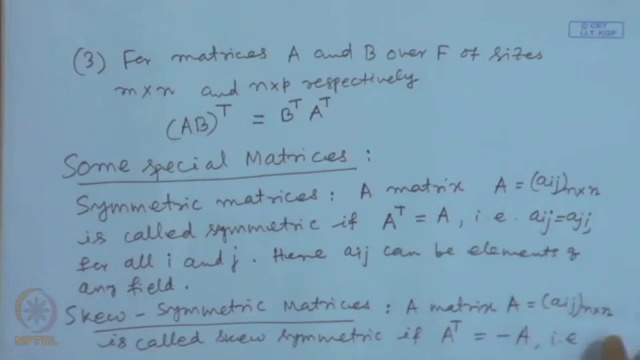 © CET
I.I.T. KGP
(3) For matrices A and B over F of sizes
m×n and n×p respectively
(AB)^T = B^T A^T
Some special Matrices :
Symmetric matrices : A matrix A = (aij)n×n
is called symmetric if A^T = A, i.e. aij = aji
for all i and j. Here aij can be elements of
any field.
Skew-Symmetric Matrices : A matrix A = (aij)n×n
is called skew symmetric if A^T = -A, i.e
NPTEL